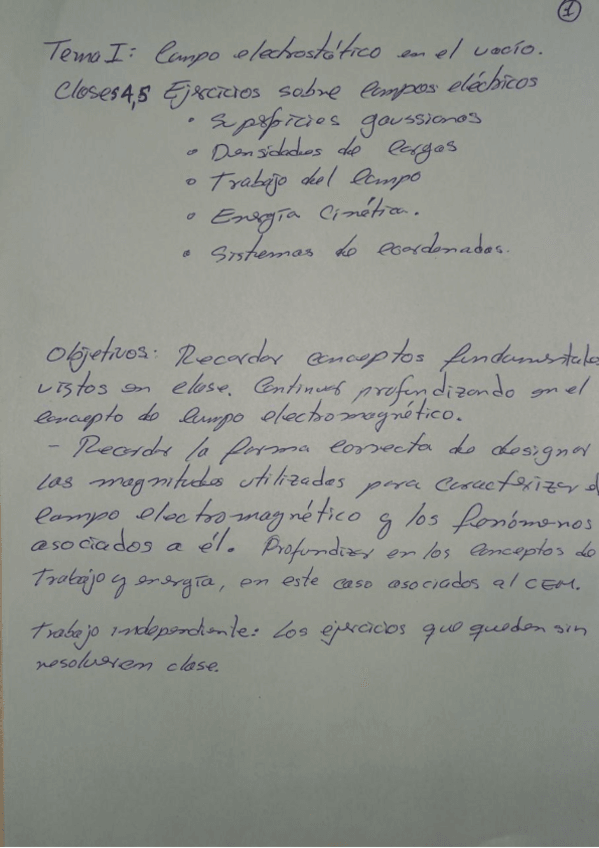 1
Tema I: Campo electrostático en el vacío.
Clases 4,5 Ejercicios sobre campos eléctricos
• Superficies gaussianas
• Densidades de cargas
• Trabajo del campo
• Energía Cinética.
• Sistemas de coordenadas.
Objetivos: Recordar conceptos fundamentales
vistos en clase. Continuar profundizando en el
concepto de campo electromagnético.
- Recordar la forma correcta de designar
las magnitudes utilizadas para caracterizar el
campo electromagnético y los fenómenos
asociados a él. Profundizar en los conceptos de
Trabajo y energía, en este caso asociados al CEM.
Trabajo independiente: Los ejercicios que queden sin
resolver en clase.